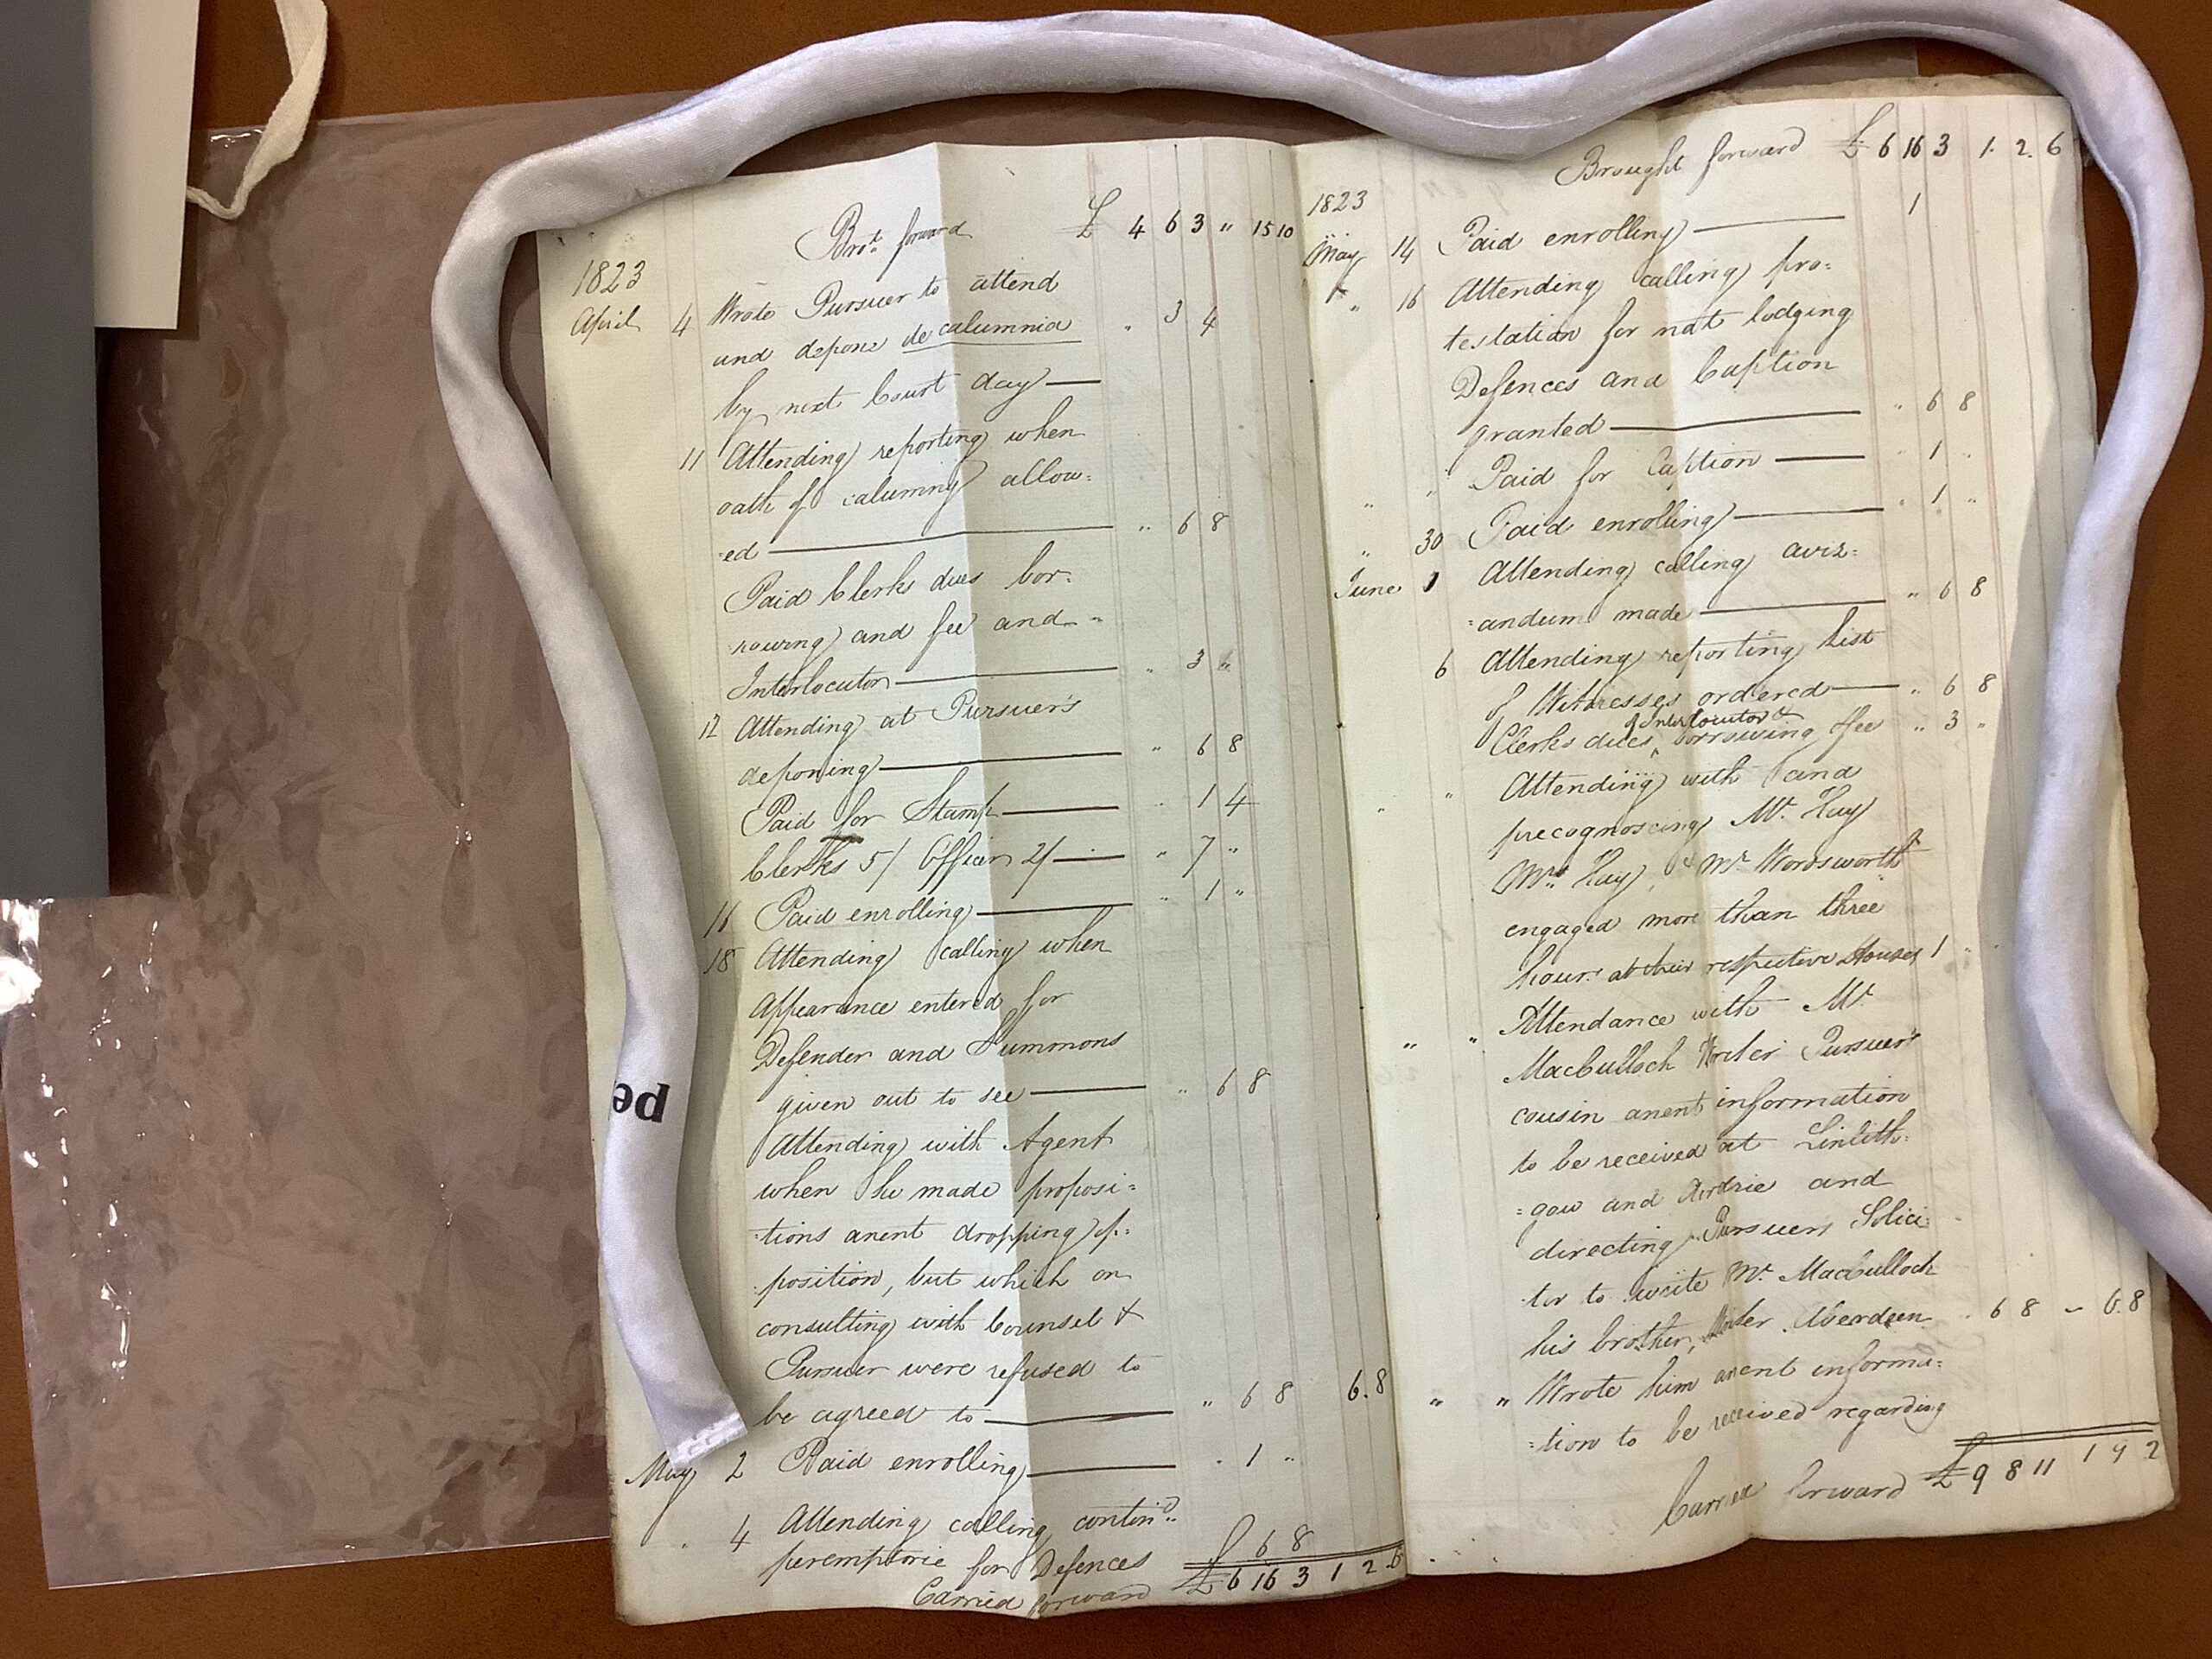 Brot. forward £ 4 6 3 " 15 10
1823
April 4 Wrote Pursuer to attend
and depone de calumnia " 3 4
by next Court day —
11 Attending reporting when
oath of calumny allow:
:ed — " 6 8
Paid Clerks dues bor:
:rowing and fee and
Interlocutor — " 3 "
12 Attending at Pursuer's
deponing — " 6 8
Paid for Stamp — " 1 4
Clerks 5/ Officer 2/ — " 7 "
16 Paid enrolling — " 1 "
18 Attending calling when
Appearance entered for
Defender and Summons
given out to see — " 6 8
Attending with Agent
when he made proposi:
:tions anent dropping op:
:position, but which on
consulting with Counsel &
Pursuer were refused to
be agreed to — " 6 8 6.8
May 2 Paid enrolling — " 1 "
" 4 Attending calling contind.
peremptorie for Defences 6 8
Carried forward £ 6 16 3 1 2 6
Brought forward £ 6 16 3 1. 2. 6
1823
May 14 Paid enrolling — 1
" 16 Attending calling pro:
testation for not lodging
Defences and Caption
granted — " 6 8
" " Paid for Caption — " 1 "
" 30 Paid enrolling — " 1 "
June 1 Attending calling aviz:
:andum made — " 6 8
6 Attending reporting List
of Witnesses ordered — " 6 8
Clerks dues of Interlocutor & borrowing fee " 3 "
" " Attending with and
precognoscing Mr. Hay
Mrs. Hay, & Mr. Wordsworth
engaged more than three
hours at their respective Houses 1 "
" " Attendance with Mr.
MacCulloch Writer Pursuer's
cousin anent information
to be received at Linlith:
:gow and Airdrie and
directing Pursuers Solici
:tor to write Mr. MacCulloch
his brother, Writer Aberdeen " 6 8 – 6.8
" " Wrote him anent informa:
:tion to be received regarding
Carried forward £ 9 8 11 1 9 2
pe